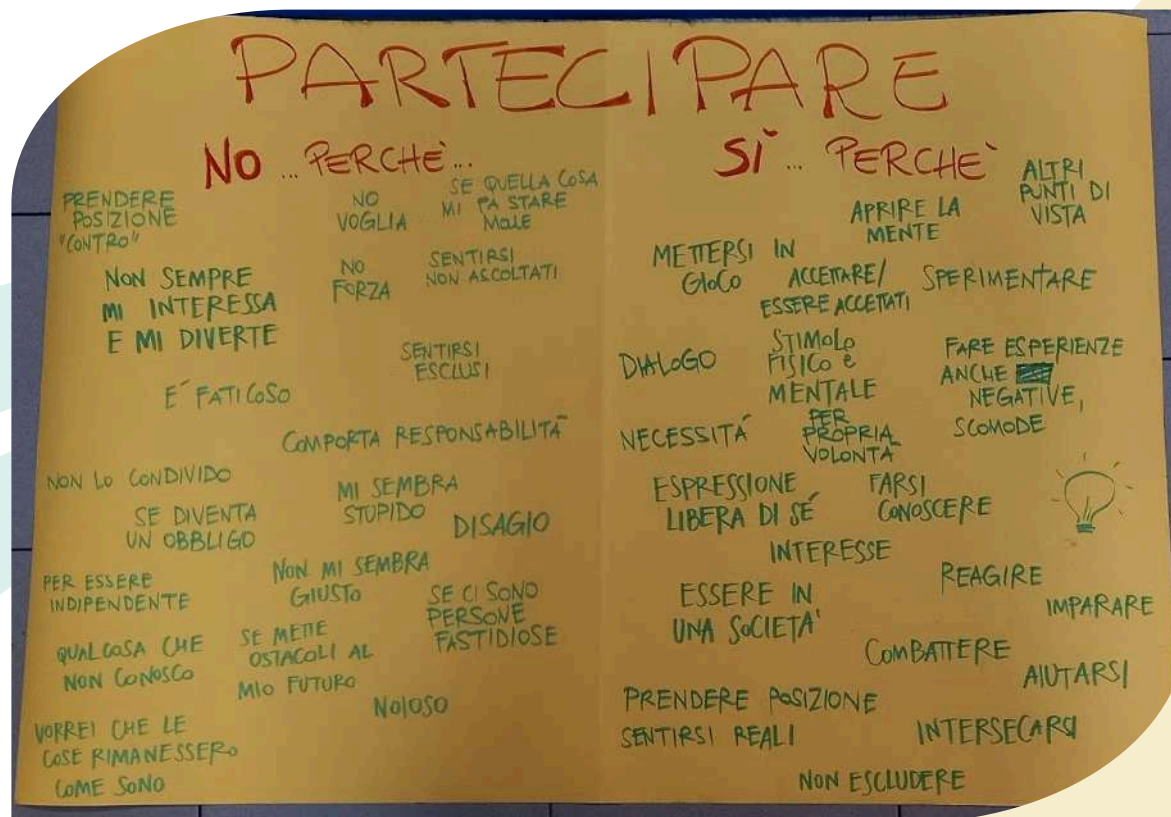 PARTECIPARE
NO ... PERCHÈ...
PRENDERE
POSIZIONE
"CONTRO"
NO
VOGLIA
SE QUELLA COSA
MI FA STARE
MALE
NON SEMPRE
MI INTERESSA
E MI DIVERTE
NO
FORZA
SENTIRSI
NON ASCOLTATI
SENTIRSI
ESCLUSI
E´ FATICOSO
COMPORTA RESPONSABILITÀ
NON LO CONDIVIDO
SE DIVENTA
UN OBBLIGO
MI SEMBRA
STUPIDO
DISAGIO
PER ESSERE
INDIPENDENTE
NON MI SEMBRA
GIUSTO
SE CI SONO
PERSONE
FASTIDIOSE
QUALCOSA CHE
NON CONOSCO
SE METTE
OSTACOLI AL
MIO FUTURO
NOIOSO
VORREI CHE LE
COSE RIMANESSERO
COME SONO
SÌ ... PERCHÈ
ALTRI
PUNTI DI
VISTA
APRIRE LA
MENTE
METTERSI IN
GIOCO
ACCETTARE/
ESSERE ACCETTATI
SPERIMENTARE
DIALOGO
STIMOLO
FISICO e
MENTALE
FARE ESPERIENZE
ANCHE
NEGATIVE,
SCOMODE
NECESSITÁ
PER
PROPRIA
VOLONTÀ
ESPRESSIONE
LIBERA DI SÉ
FARSI
CONOSCERE
INTERESSE
REAGIRE
ESSERE IN
UNA SOCIETA'
IMPARARE
COMBATTERE
AIUTARSI
PRENDERE POSIZIONE
SENTIRSI REALI
INTERSECARSI
NON ESCLUDERE